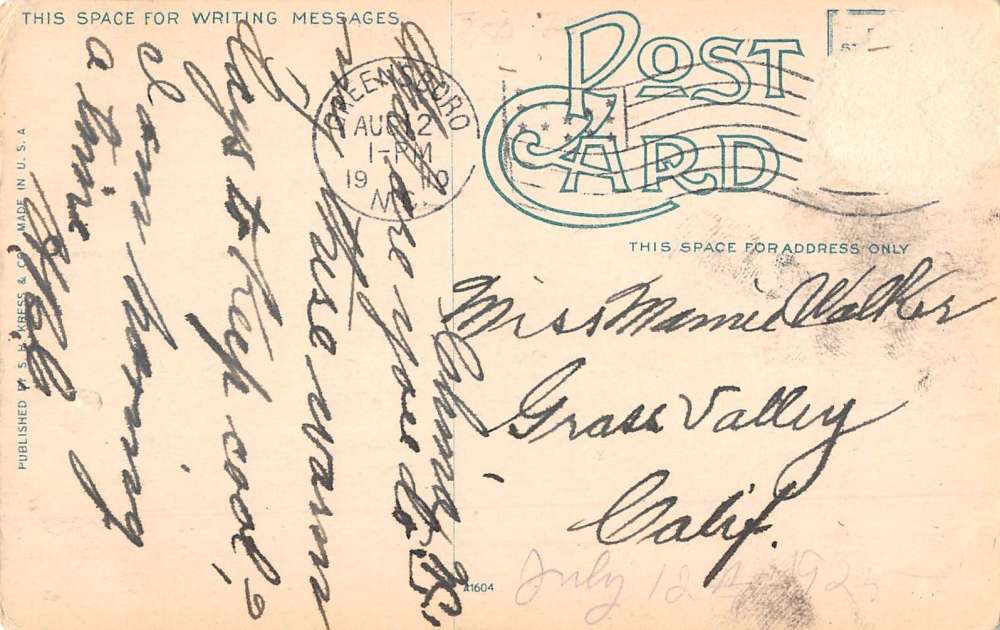 THIS SPACE FOR WRITING MESSAGES.
POST CARD
GREENSBORO
AUG 12
1-PM
19 10
N.C.
THIS SPACE FOR ADDRESS ONLY
Miss Mamie Walker
Grass Valley
Calif.
What are you doing
these warm
days to keep cool?
I am having
a time
41604
PUBLISHED BY S. H. KRESS & CO. MADE IN U.S.A
July 12